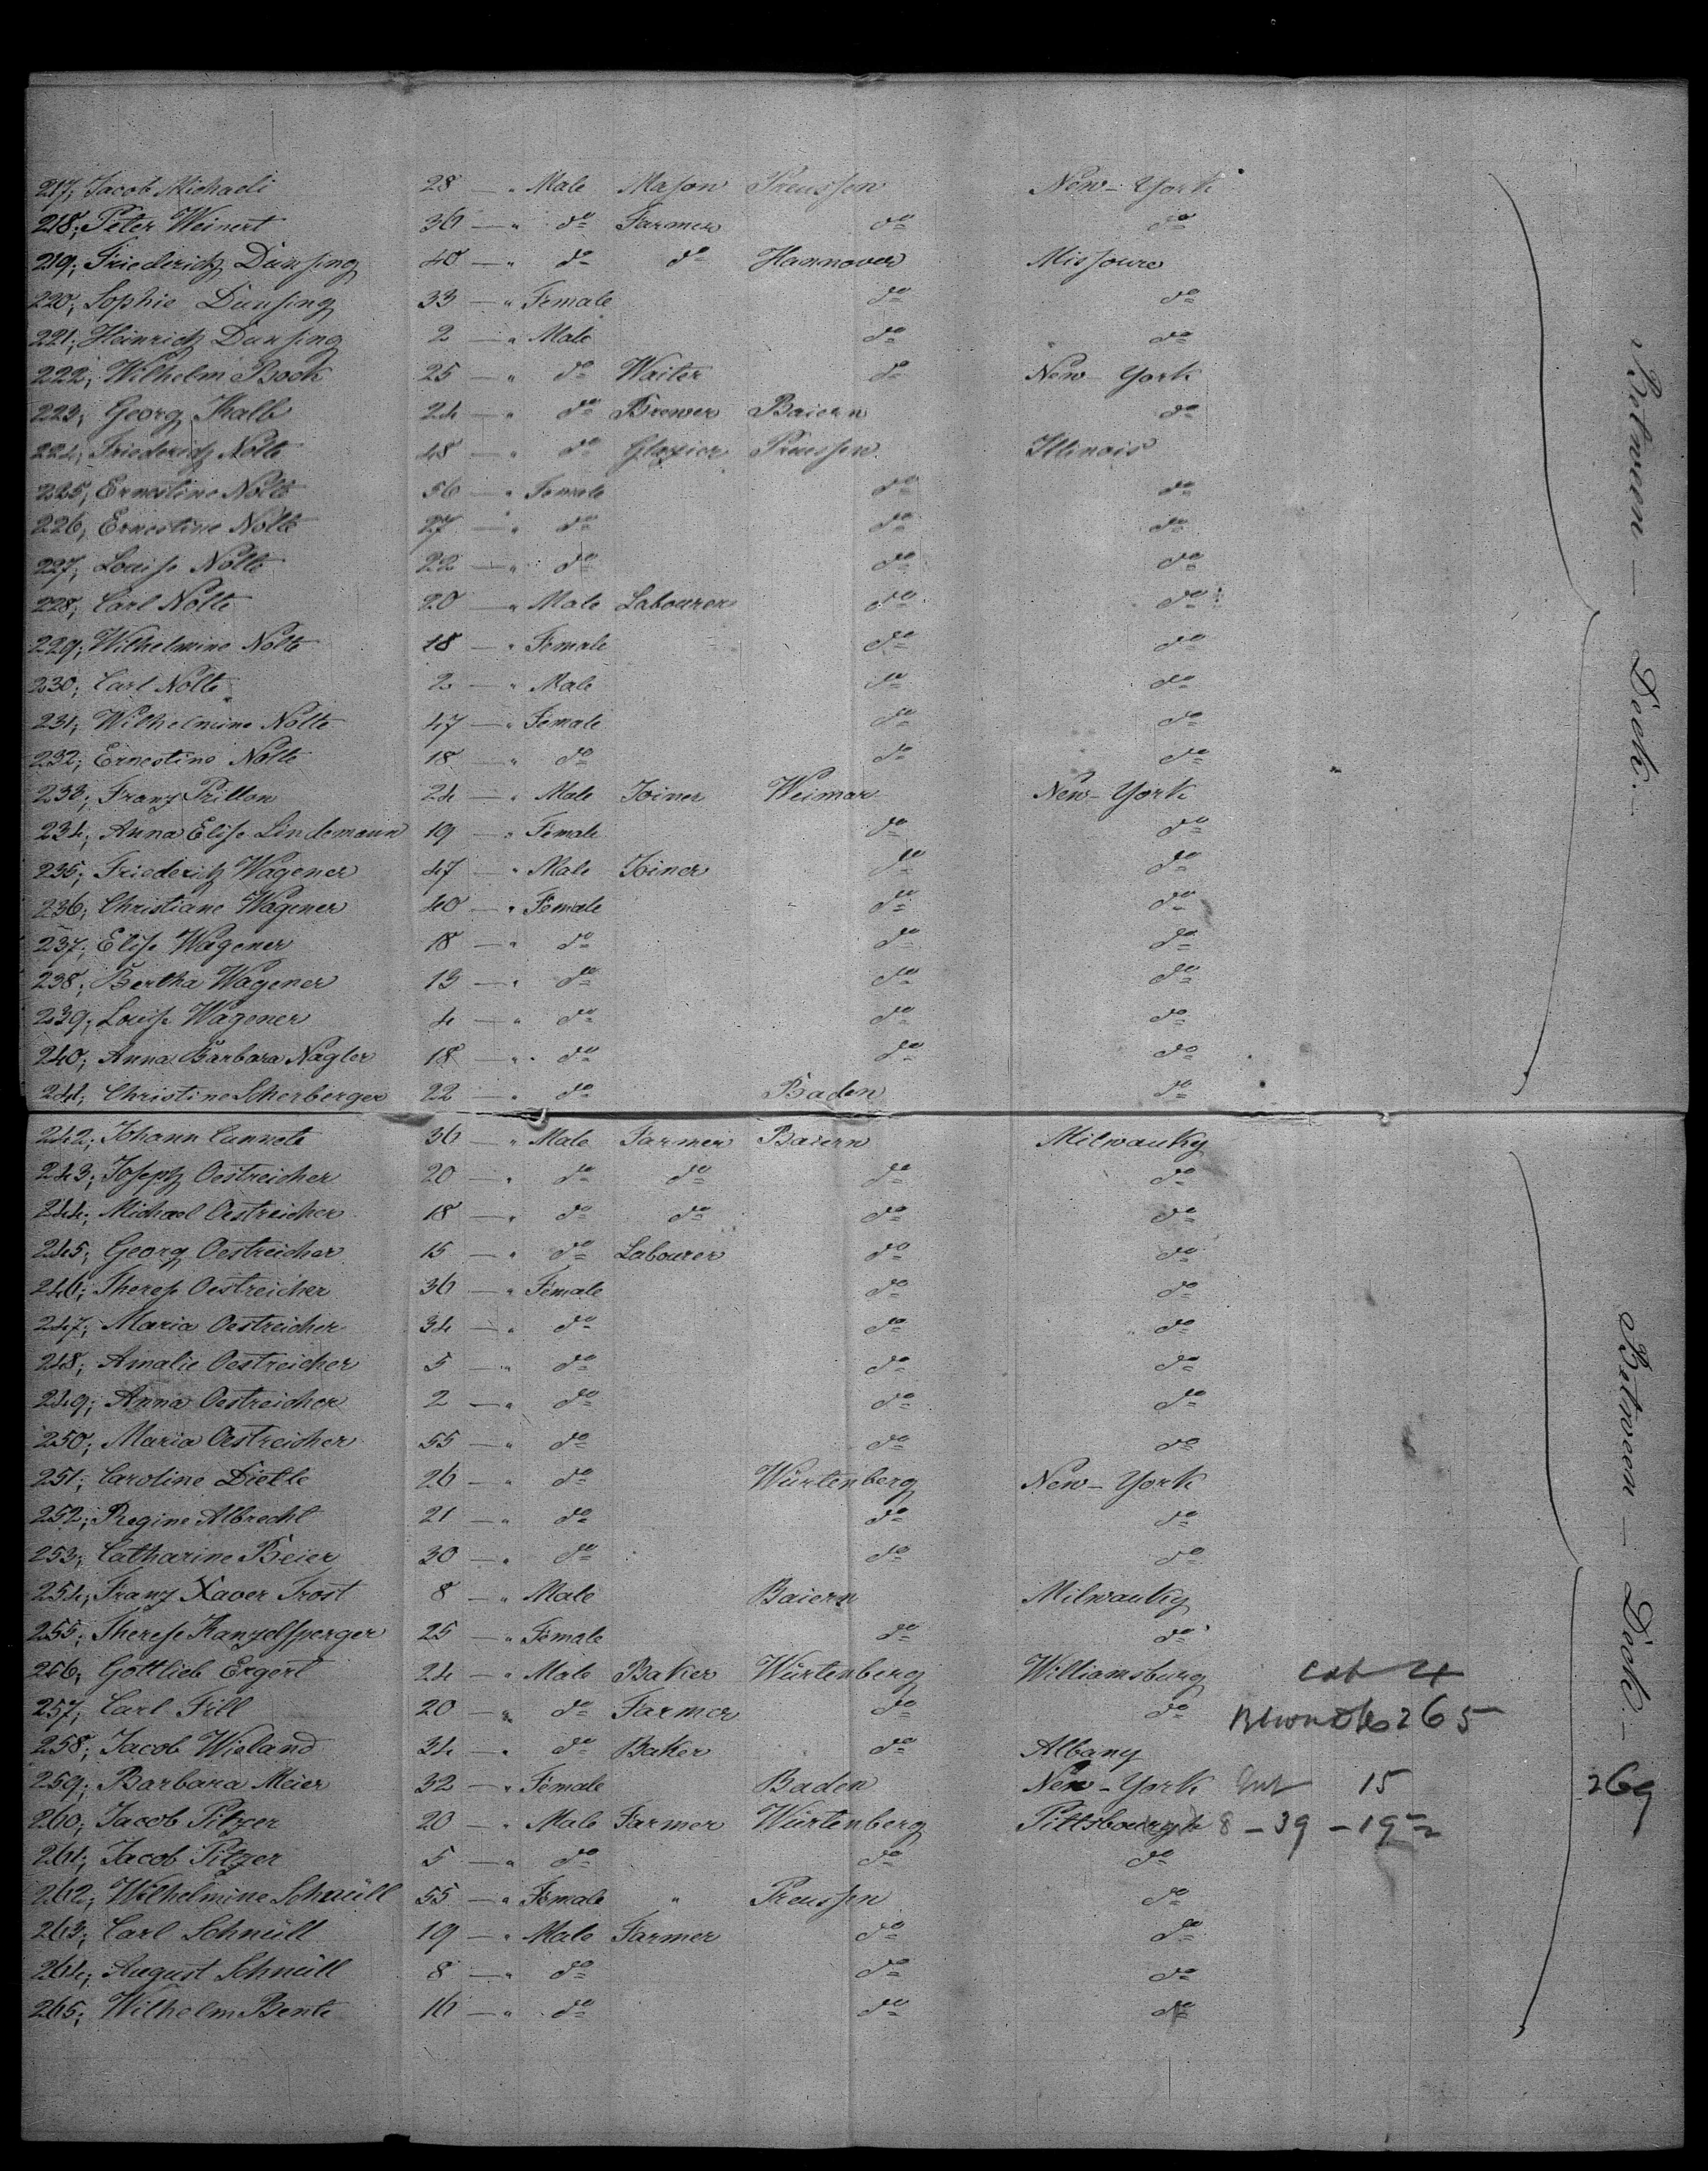 217; Jacob Michaeli 28 — " Male Mason Preussen New-York
218; Peter Weinert 36 — " do Farmer do do
219; Friederich Dunsing 40 — " do do Hannover Missoure
220; Sophie Dunsing 33 — " Female do do
221; Heinrich Dunsing 2 — " Male do do
222; Wilhelm Bock 25 — " do Waiter do New-York
223; Georg Kalb 24 — " do Brewer Baiern do
224; Friederich Nolte 48 — " do Glazier Preussen Illinois
225; Ernestine Nolte 56 — " Female do do
226; Ernestine Nolte 27 — " do do do
227; Louise Nolte 22 — " do do do
228; Carl Nolte 20 — " Male Labourer do do
229; Wilhelmine Nolte 18 — " Female do do
230; Carl Nolte 2 — " Male do do
231; Wilhelmine Nolte 47 — " Female do do
232; Ernestine Nolte 18 — " do do do
233; Franz Prillon 24 — " Male Joiner Weimar New-York
234; Anna Elise Lindemann 19 — " Female do do
235; Friederich Wagener 47 — " Male Joiner do do
236; Christiane Wagener 40 — " Female do do
237; Elise Wagener 18 — " do do do
238; Bertha Wagener 13 — " do do do
239; Louise Wagener 4 — " do do do
240; Anna Barbara Nagler 18 — " do do do
241; Christine Scherberger 22 — " do Baden do
Between — Deck.—
242; Johann Cunnete 36 — " Male Farmer Baiern Milwauky
243; Joseph Oestreicher 20 — " do do do do
244; Michael Oestreicher 18 — " do do do do
245; Georg Oestreicher 15 — " do Labourer do do
246; Therese Oestreicher 36 — " Female do do
247; Maria Oestreicher 34 — " do do do
248; Amalie Oestreicher 5 — " do do do
249; Anna Oestreicher 2 — " do do do
250; Maria Oestreicher 55 — " do do do
251; Caroline Dietle 26 — " do Würtenberg New-York
252; Regine Albrecht 21 — " do do do
253; Catharine Beier 30 — " do do do
254; Franz Xaver Trost 8 — " Male Baiern Milwauky
255; Therese Kanzelsperger 25 — " Female do do
256; Gottlieb Ergert 24 — " Male Baker Würtenberg Williamsburg Cab 4
257; Carl Fill 20 — " do Farmer do do 265
258; Jacob Wieland 34 — " do Baker do Albany
259; Barbara Meier 32 — " Female Baden New-York 15
260; Jacob Pitzer 20 — " Male Farmer Würtenberg Pittsbourgh 8 – 39 – 19
261; Jacob Pitzer 5 — " do do do
262; Wilhelmine Schnüll 55 — " Female " Preussen do
263; Carl Schnüll 19 — " Male Farmer do do
264; August Schnüll 8 — " do do do
265; Wilhelm Bente 16 — " do do do
Between — Deck.—
269